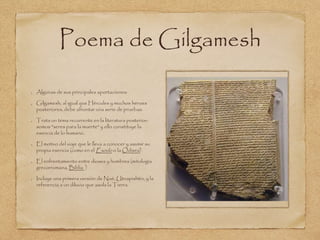 Poema de Gilgamesh
Algunas de sus principales aportaciones:
Gilgamesh, al igual que Hércules y muchos héroes
posteriores, debe afrontar una serie de pruebas.
Trata un tema recurrente en la literatura posterior:
somos "seres para la muerte" y ello constituye la
esencia de lo humano.
El motivo del viaje que le lleva a conocer y asumir su
propia esencia (como en el Éxodo o la Odisea).
El enfrentamiento entre dioses y hombres (mitología
grecorromana, Biblia
Incluye una primera versión de Noé, Utnapishtin, y la
referencia a un diluvio que asola la Tierra.